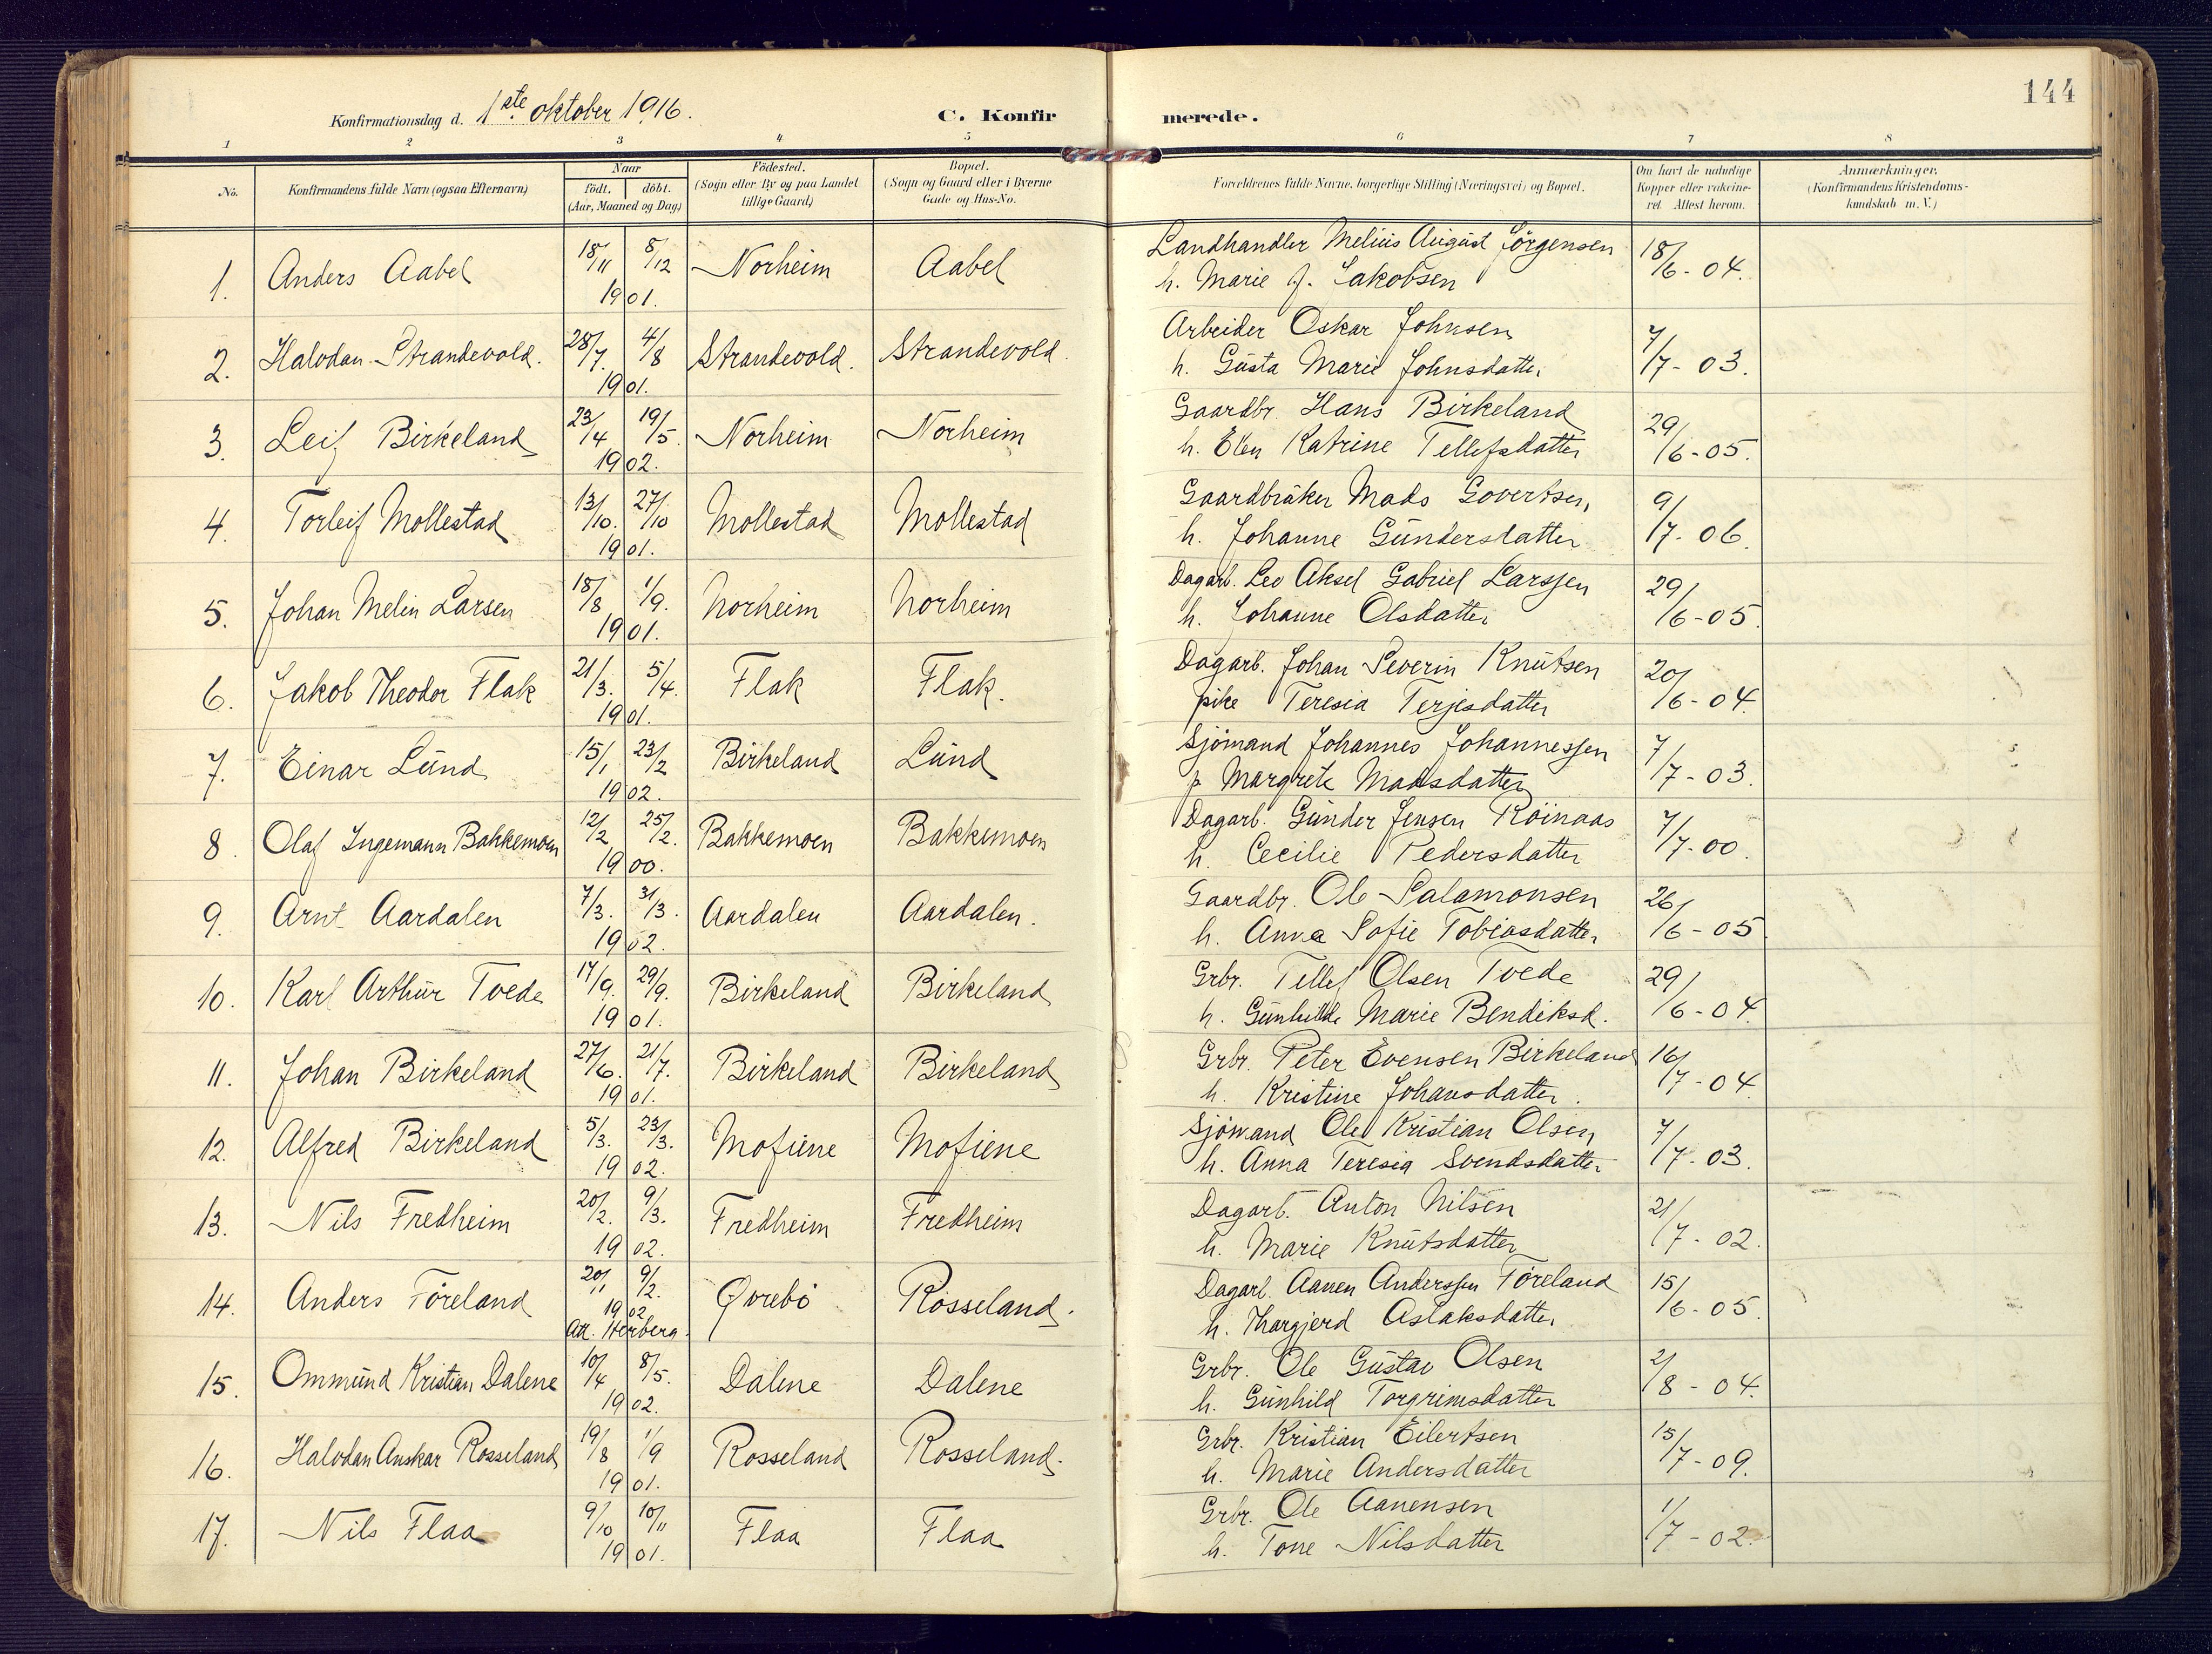 144
Konfirmationsdag d. 1ste oktober 1916.
C. Konfirmerede.
1 2 3 4 5 6 7 8
No.
Konfirmandens fulde Navn (ogsaa Efternavn)
Naar
födt. döbt.
(Aar, Maaned og Dag)
Födested.
(Sogn eller By og paa Landet
tillige Gaard)
Bopæl.
(Sogn og Gaard eller i Byerne
Gade og Hus-No.
Forældrenes fulde Navne, borgerlige Stilling (Næringsvei) og Bopæl.
Om havt de naturlige
Kopper eller vakcine-
ret. Attest herom.
Anmærkninger.
(Konfirmandens Kristendoms-
kundskab m. V.)
1. Anders Aabel 18/11 8/12 1901. Norheim Aabel
Landhandler Melius August Jörgensen
h. Marie J. Jakobsen 18/6-04.
2. Halvdan Strandevold. 28/7. 4/8 1901. Strandevold. Strandevold.
Arbeider Oskar Johnsen
h. Gusta Marie Johnsdatter 7/7-03.
3. Leif Birkeland 23/4 19/5. 1902. Norheim Norheim
Gaardbr. Hans Birkeland
h. Elen Katrine Tellefsdatter 29/6-05.
4. Torleif Mollestad 13/10. 27/10 1901. Mollestad Mollestad
Gaardbruker Mads Govertsen
h. Johanne Gundersdatter 9/7-06.
5. Johan Melin Larsen 18/8 1/9. 1901. Norheim Norheim
Dagarb. Leo Aksel Gabriel Larssen
h. Johanne Olsdatter 29/6-05.
6. Jakob Theodor Flak 21/3. 5/4. 1901. Flak Flak.
Dagarb. Johan Severin Knutsen
pike Teresia Terjesdatter 20/6-04.
7. Einar Lund 15/1 23/2 1902. Birkeland Lund
Sjömand Johannes Johannessen
p. Margrete Madsdatter 7/7-03.
8. Olaf Ingemann Bakkemoen 12/2 25/2. 1900. Bakkemoen Bakkemoen
Dagarb. Gunder Jensen Röinaas
h. Cecilie Pedersdatter 7/7-00.
9. Arnt Aardalen 7/3. 31/3. 1902. Aardalen Aardalen.
Gaardbr. Ole Salamonsen
h. Anna Sofie Tobiasdatter 26/6-05
10. Karl Arthur Tvede 17/9. 29/9. 1901. Birkeland Birkeland
Grbr. Tellef Olsen Tvede
h. Gunhilde Marie Bendiksd. 29/6-04.
11. Johan Birkeland 27/6. 21/7. 1901. Birkeland Birkeland
Grbr. Peter Evensen Birkeland
h. Kristine Johansdatter. 16/7-04
12. Alfred Birkeland 5/3. 23/3. 1902. Mofiene Mofiene
Sjömand Ole Kristian Olsen
h. Anna Teresia Svendsdatter 7/7-03.
13. Nils Fredheim 20/2. 9/3. 1902. Fredheim Fredheim
Dagarb. Anton Nilsen
h. Marie Knutsdatter 21/7-02.
14. Anders Töreland 20/1 9/2. 1902 Øvrebö Rosseland.
Att.
Dagarb. Aanen Anderssen Töreland
h. Thorgjerd Aslaksdatter 15/6-05.
15. Ommund Kristian Dalene 10/4 8/5. 1902. Dalene Dalene
Grbr. Ole Gustav Olsen
h. Gunhild Torgrimsdatter 2/8-04.
16. Halvdan Anskar Rosseland 19/8 1/9 1901. Rosseland Rosseland.
Grbr. Kristian Eilertsen
h. Marie Andersdatter 15/7-09.
17. Nils Flaa 9/10 10/11 1901. Flaa Flaa
Grbr. Ole Aanensen
h. Tone Nilsdatter 1/7-02.